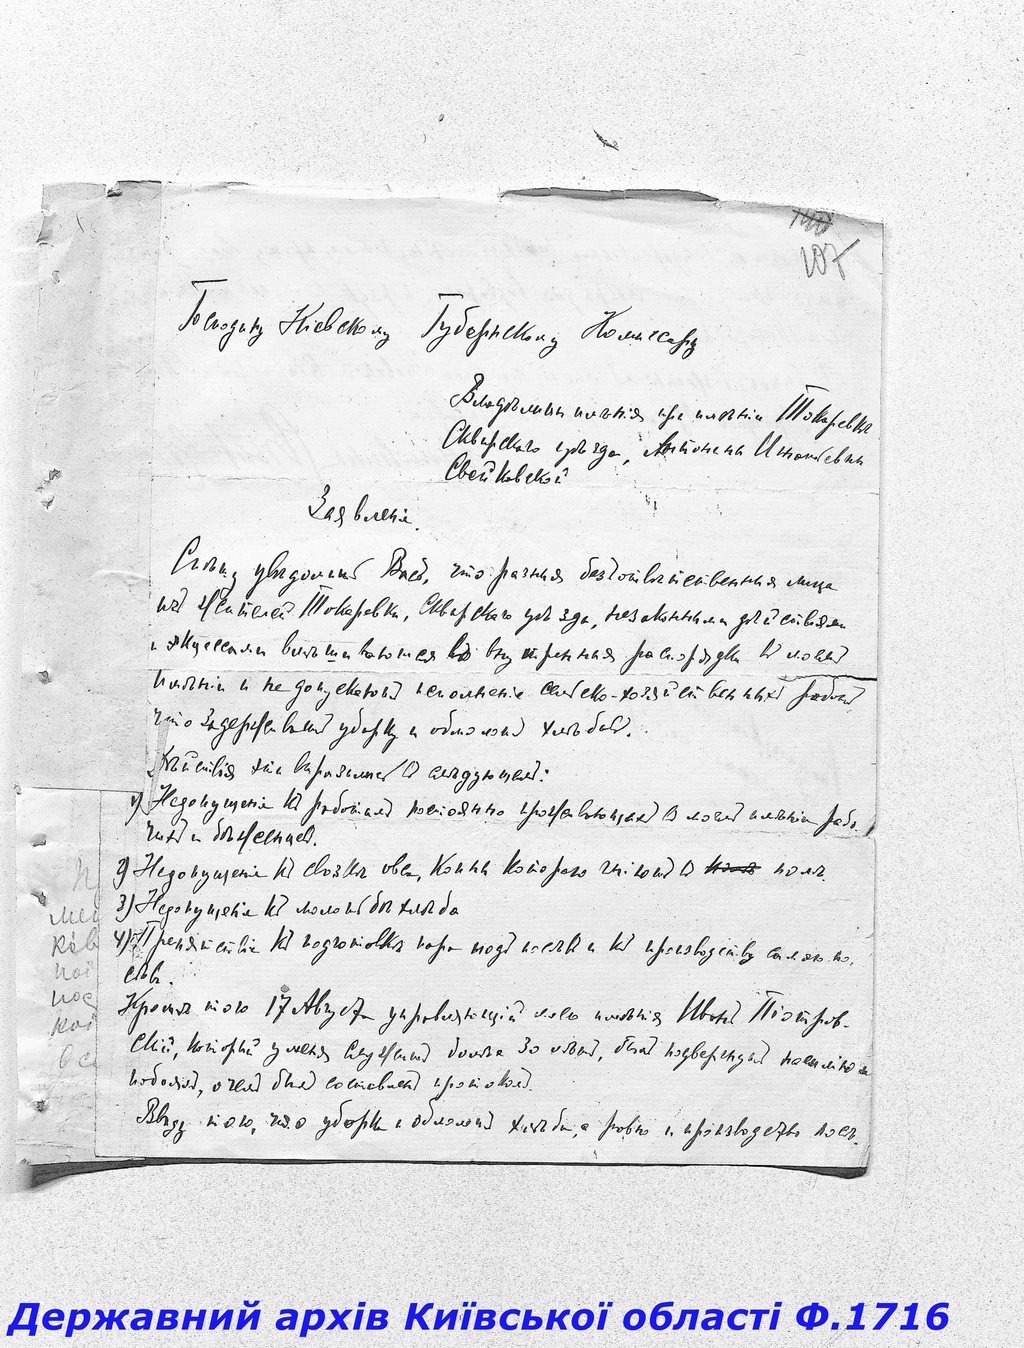 107
Господину Кіевскому Губернскому Комиссару
Владѣлицы имѣнія при имѣніи Токаревкѣ
Сквирскаго уѣзда, Антонины Игнатьевны
Свейковской
Заявленіе.
Спѣшу увѣдомить Васъ, что разныя безотвѣтственныя лица
изъ жителей Токаревки, Сквирскаго уѣзда, незаконными дѣйствіями
и эксцессами вмѣшиваются въ внутреннія распорядки въ моемъ
имѣніи и не допускаютъ исполненіе сельско-хозяйственныхъ работъ
что задерживаетъ уборку и обмолотъ хлѣбовъ.
Дѣйствія эти выразились въ слѣдующемъ:
1) Недопущеніе къ работамъ постоянно проживающихъ въ моемъ имѣніи рабо-
чихъ и бѣженцевъ.
2) Недопущеніе къ свозкѣ овса, копны котораго гніютъ въ полѣ.
3) Недопущеніе къ молотьбѣ хлѣба
4) Препятствіе къ подготовкѣ пара подъ посѣвъ и къ производству самаго по-
сѣва.
Кромѣ того 17 Августа управляющій мого имѣнія Иванъ Піотров-
скій, который у меня служитъ болѣе 30 лѣтъ, былъ подвергнутъ насилію и
побоямъ, о чемъ былъ составленъ протоколъ.
Ввиду того, что уборка и обмолотъ хлѣба, а ровно и производство посѣ-
Державний архів Київської області Ф.1716